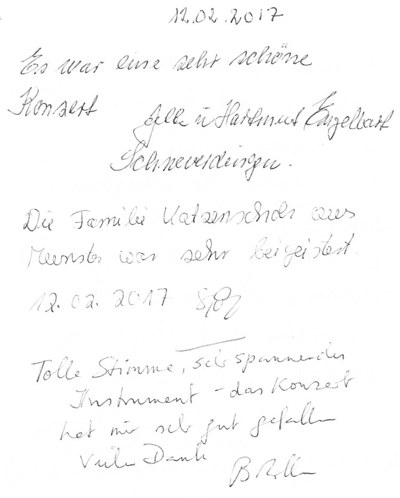 12.02.2017
Es war eine sehr schöne
Konzert
u Hartmut Engelbart
Schneverdingen.
Die Familie aus
Munster war sehr beigeistert.
12.02.2017
Tolle Stimme, sehr spannendes
Instrument - das Konzert
hat mir sehr gut gefallen
Viele Dank